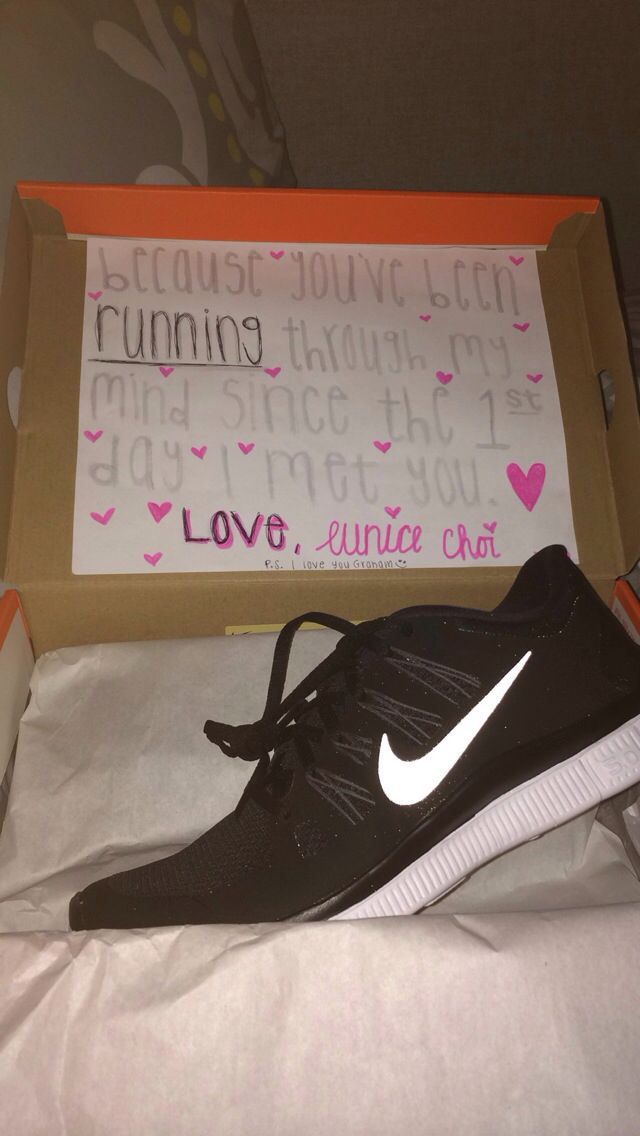 because you've been
running through my
mind since the 1st
day I met you.
Love, eunice choi
P.S. I love you Graham
5.0